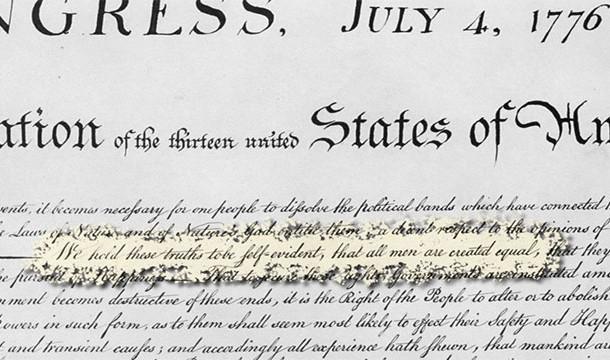 NGRESS, JULY 4, 1776
ation of the thirteen united States of Am
vents, it becomes necessary for one people to dissolve the political bands which have connected
Laws of Nature and of Nature's God entitle them, a decent respect to the opinions of
We hold these truths to be self-evident, that all men are created equal, that they
the pursuit of Happiness
nment becomes destructive of these ends, it is the Right of the People to alter or to abolish
powers in such form, as to them shall seem most likely to effect their Safety and Happ
t and transient causes; and accordingly all experience hath shewn, that mankind ar